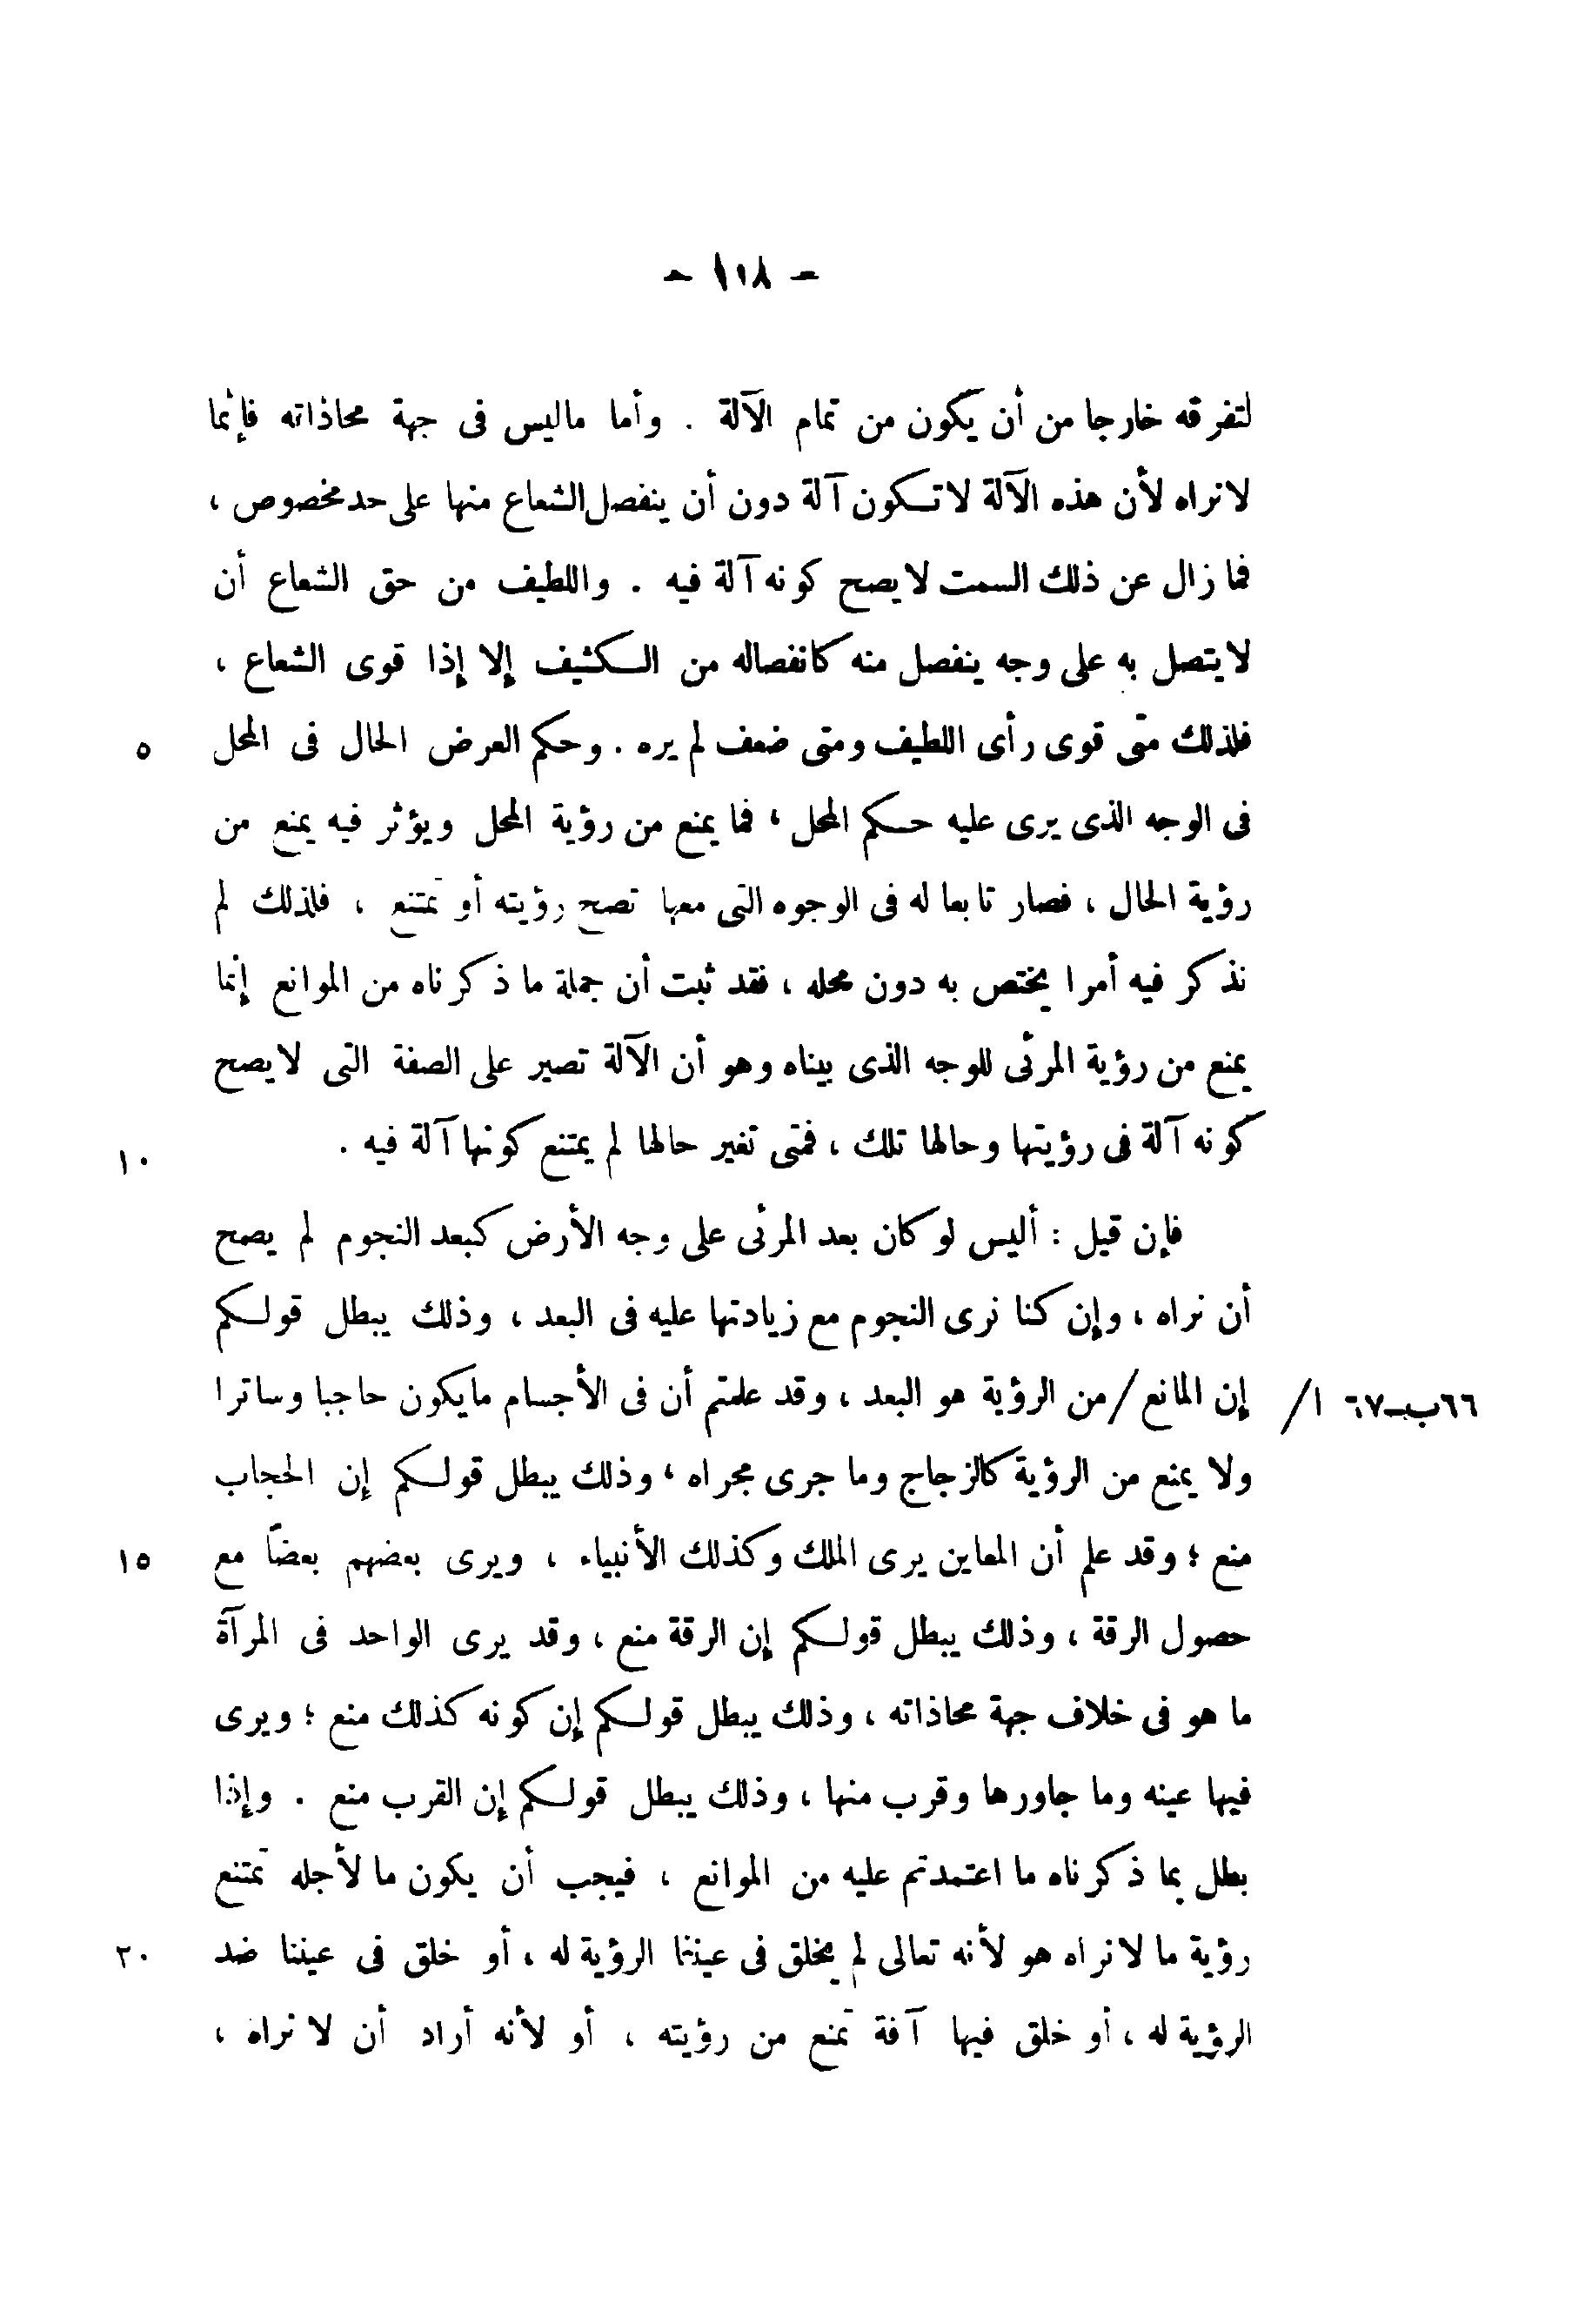 - ١١٨ -
لتفرقه خارجا من أن يكون من تمام الآلة . وأما ماليس فى جهة محاذاته فإنما
لانراه لأن هذه الآلة لاتكون آلة دون أن ينفصل الشعاع منها على حد مخصوص ،
فما زال عن ذلك السمت لايصح كونه آلة فيه . واللطيف من حق الشعاع أن
لايتصل به على وجه ينفصل منه كانفصاله من الكثيف إلا إذا قوى الشعاع ،
فلذلك متى قوى رأى اللطيف ومتى ضعف لم يره . وحكم العرض الحال فى المحل ٥
فى الوجه الذى يرى عليه حكم المحل ، فما يمنع من رؤية المحل ويؤثر فيه يمنع من
رؤية الحال ، فصار تابعا له فى الوجوه التى معها تصح رؤيته أو تمتنع ، فلذلك لم
نذكر فيه أمرا يختص به دون محله ، فقد ثبت أن جملة ما ذكرناه من الموانع إنما
يمنع من رؤية المرئى للوجه الذى بيناه وهو أن الآلة تصير على الصفة التى لايصح
كونه آلة فى رؤيتها وحالها تلك ، فمتى تغير حالها لم يمتنع كونها آلة فيه . ١٠
فإن قيل : أليس لو كان بعد المرئى على وجه الأرض كبعد النجوم لم يصح
أن نراه ، وإن كنا نرى النجوم مع زيادتها عليه فى البعد ، وذلك يبطل قولكم
٦٦ب-٦٧ ا/ إن المانع /من الرؤية هو البعد ، وقد علمتم أن فى الأجسام مايكون حاجبا وساترا
ولا يمنع من الرؤية كالزجاج وما جرى مجراه ، وذلك يبطل قولكم إن الحجاب
منع ؛ وقد علم أن المعاين يرى الملك وكذلك الأنبياء ، ويرى بعضهم بعضًا مع ١٥
حصول الرقة ، وذلك يبطل قولكم إن الرقة منع ، وقد يرى الواحد فى المرآة
ما هو فى خلاف جهة محاذاته ، وذلك يبطل قولكم إن كونه كذلك منع ؛ ويرى
فيها عينه وما جاورها وقرب منها ، وذلك يبطل قولكم إن القرب منع . وإذا
بطل بما ذكرناه ما اعتمدتم عليه من الموانع ، فيجب أن يكون ما لأجله تمتنع
رؤية ما لانراه هو لأنه تعالى لم يخلق فى عيننا الرؤية له ، أو خلق فى عيننا ضد ٢٠
الرؤية له ، أو خلق فيها آفة تمنع من رؤيته ، أو لأنه أراد أن لا نراه ،